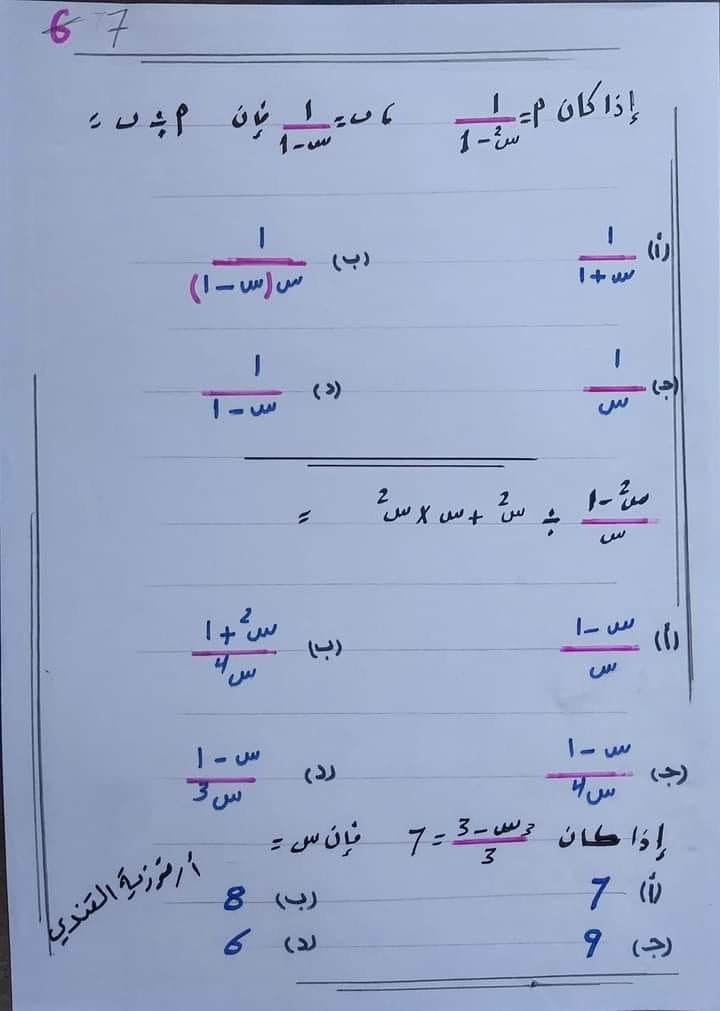 6 7
إذا كان م = 1/(س² - 1) ، ن = 1/(س - 1) فإن م ÷ ن =
(أ) 1/(س + 1) (ب) 1/(س(س - 1))
(ج) 1/س (د) 1/(س - 1)
(س² - 1)/س ÷ س² + س × س² =
(أ) (س - 1)/س (ب) (س² + 1)/س⁴
(ج) (س - 1)/س⁴ (د) (س - 1)/س³
إذا كان (3س - 3)/3 = 7 فإن س =
(أ) 7 (ب) 8
(ج) 9 (د) 6
أ. فوزية القندي